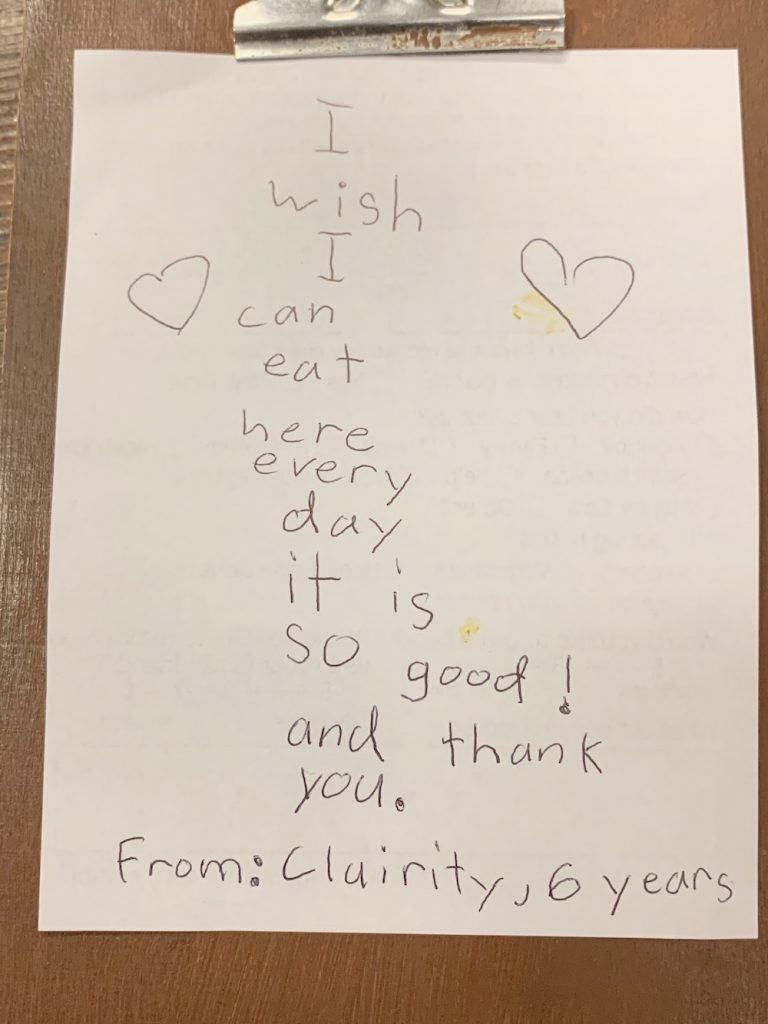 I
wish
I
can
eat
here
every
day
it is
so good!
and thank
you.
From: Clairity, 6 years